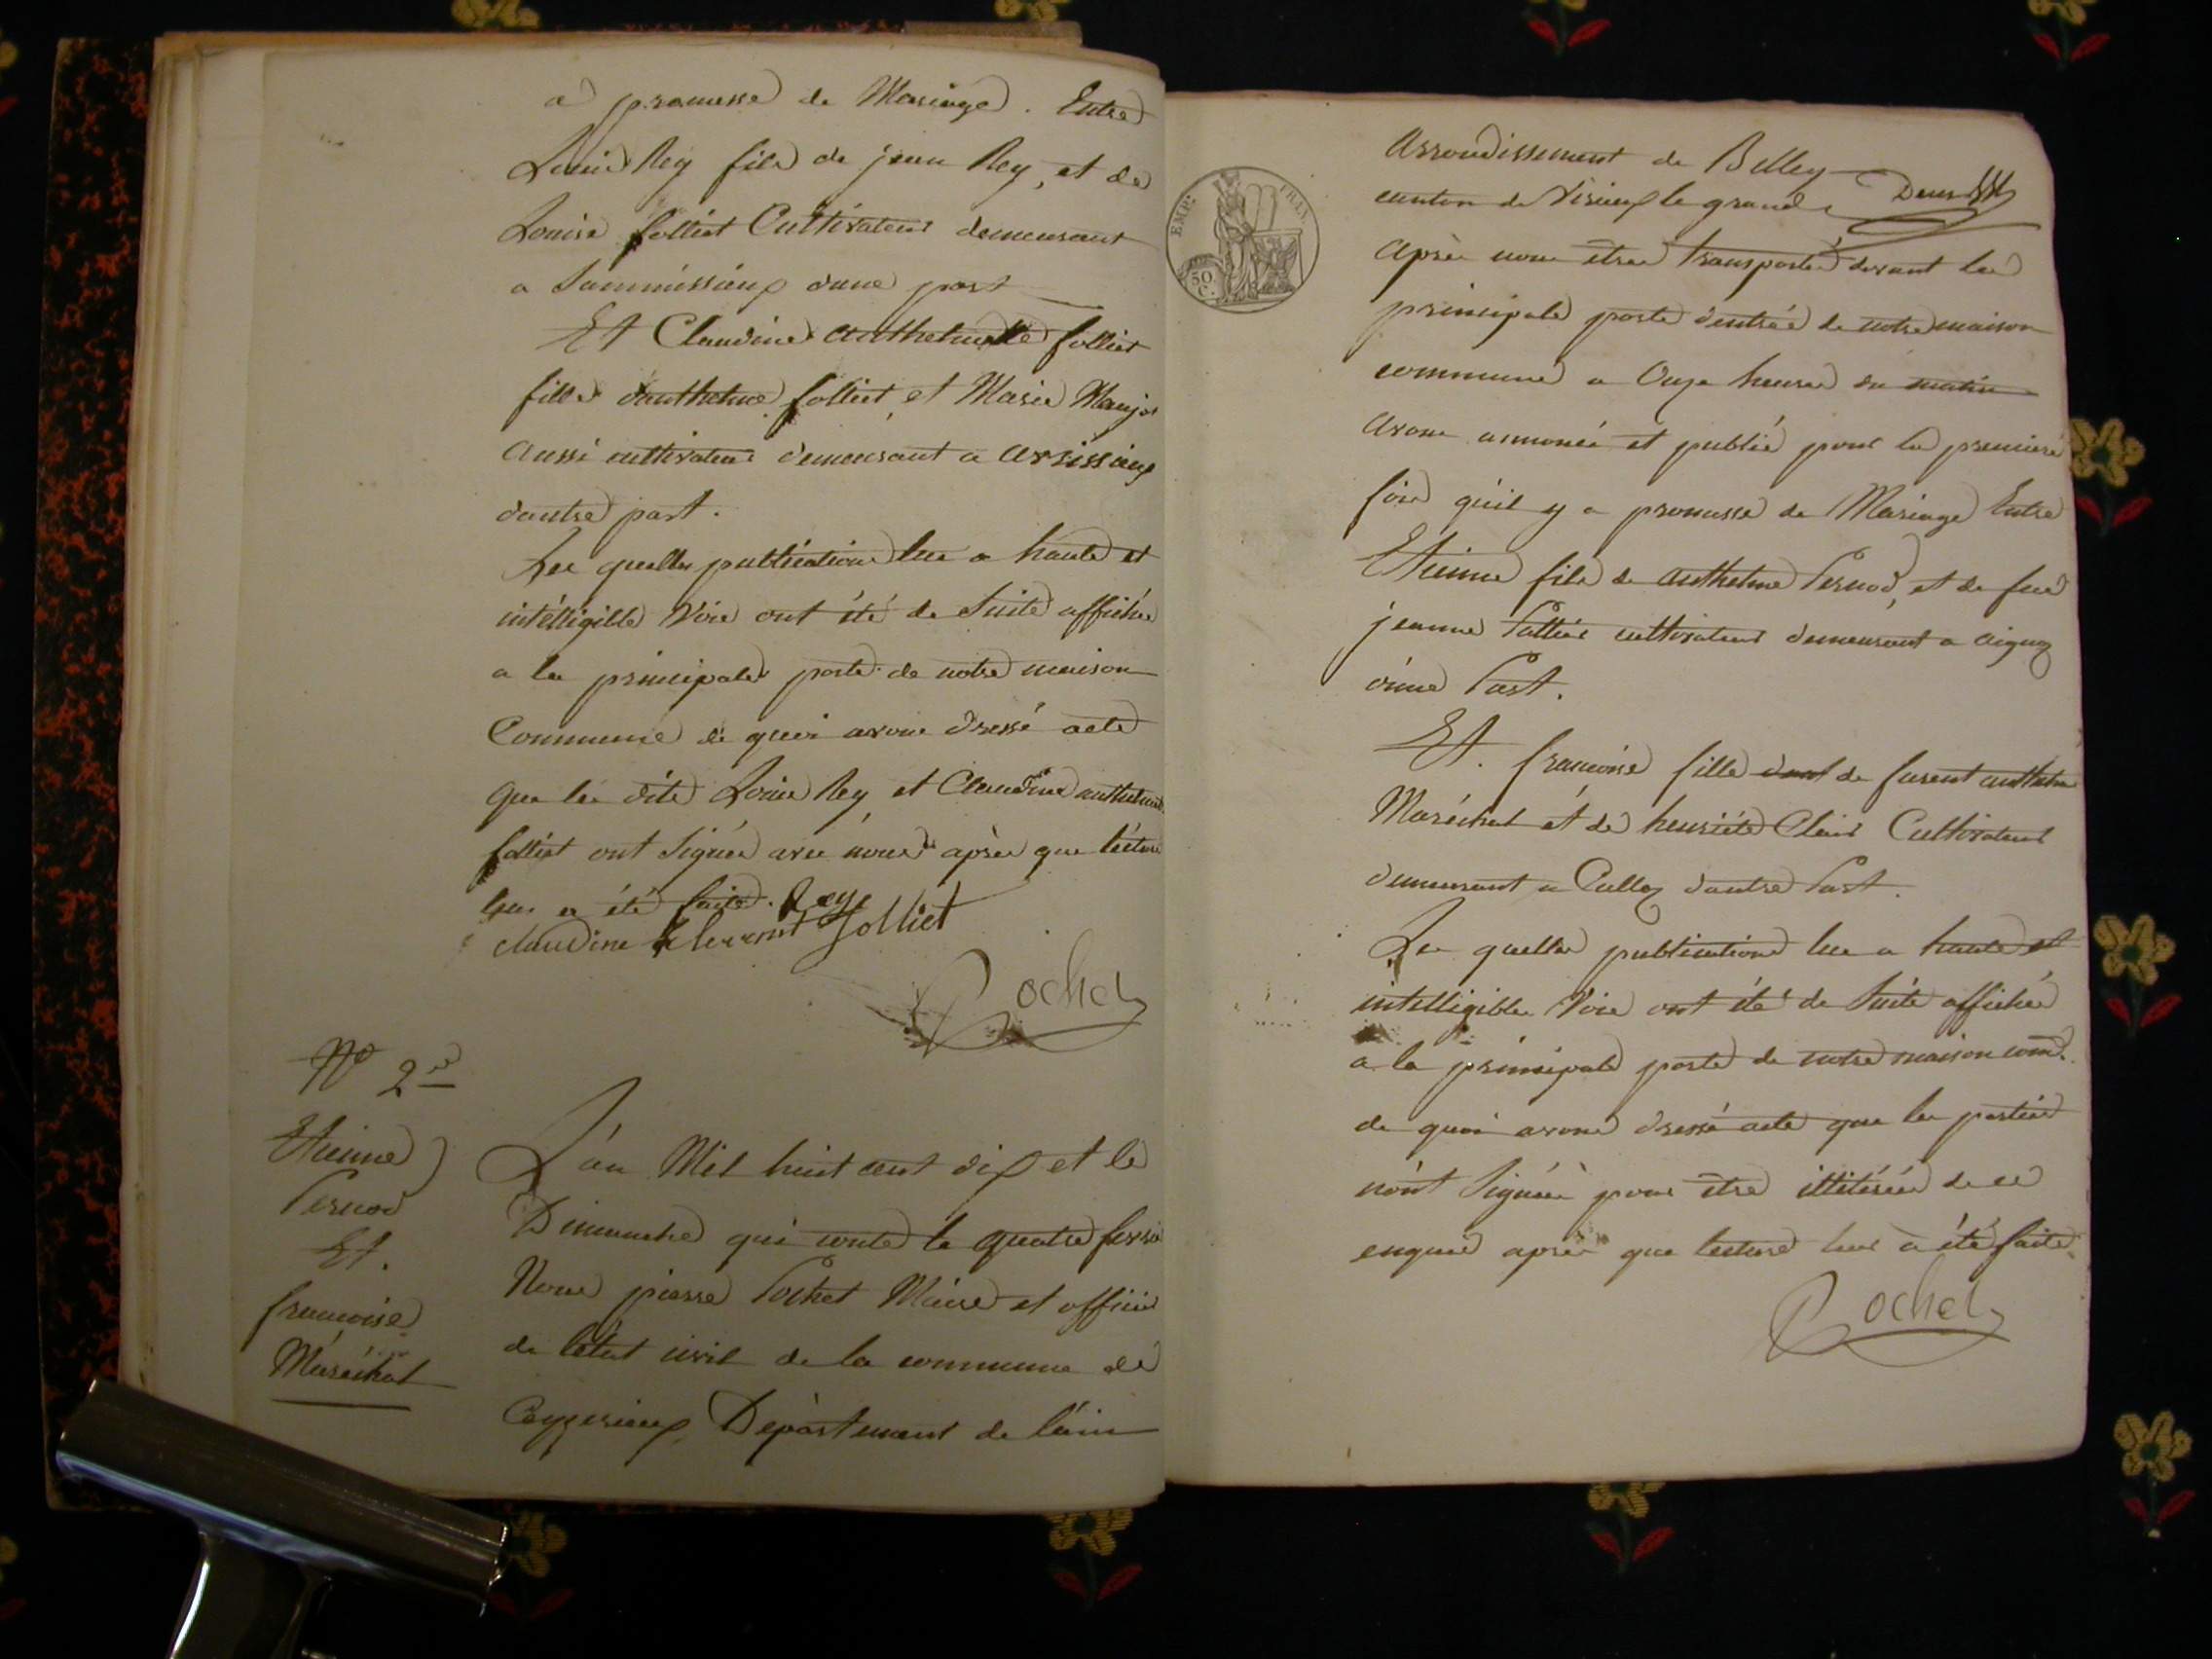 a promesse de Mariage. Entre
Louis Rey fils de jean Rey, et de
Louise folliet Cultivateur demeurant
a dune part
Et Claudine folliet
fille danthelme folliet, et Marie
aussi cultivateur demeurant a
dautre part.
Les quelles publications lue a haute et
intélligible Voix ont été de Suite affichée
a la principale porte de notre maison
Commune de quoi avons dressé acte
que les dits Louis Rey et Claudine
folliet ont Signée avec nous après que lécture
leur a été faite. Rey
claudine folliet
Pochet
N° 2
Etienne
Pernod
Et.
francoise
Maréchal
L'an Mil huit cent dix et le
Dimanche qui conte le quatre
Nous pierre Pochet Maire et officié
de létat civil de la commune de
Ceyzerieux, Departement de lain
EMP: FRAN.
50
C.
Arrondissement de Belley
canton de Virieux le grand Deux
Après nous êtres transportée devant la
principale porte dentrée de notre maison
commune a Onze heures du matin
avons annoncée et publié pour la première
fois qu'il y a promesse de Mariage Entre
Etienne fils de anthelme Pernod, et de feue
jeanne cultivateur demeurant a aignoz
d'une Part.
Et. francoise fille de furent anthelme
Maréchal et de henriéte Clair Cultivateur
demeurant a Culloz dautre Part.
Les quelles publications lue a haute et
intelligible Voix ont été de Suite affichée
a la principale porte de notre maison com.
de quoi avons dressé acte que les parties
n'ont Signéé pour être illitérée de ce
enquis après que lecture leur à été faite
Pochet